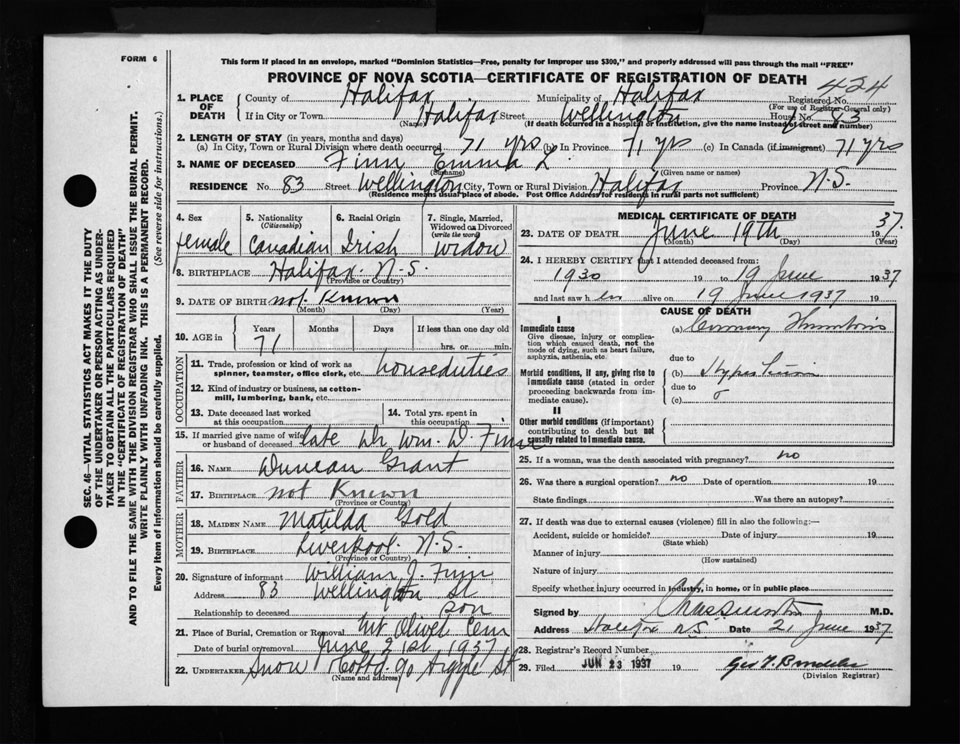 FORM 6
This form if placed in an envelope, marked "Dominion Statistics—Free, penalty for improper use $300," and properly addressed will pass through the mail "FREE"
PROVINCE OF NOVA SCOTIA—CERTIFICATE OF REGISTRATION OF DEATH
424
1. PLACE OF DEATH County of Halifax Municipality of Halifax Registered No. (For use of Registrar General only)
If in City or Town Halifax (Name) Street Wellington House No. 83
(If death occurred in a hospital or institution, give the name instead of street and number)
2. LENGTH OF STAY (in years, months and days)
(a) In City, Town or Rural Division where death occurred 71 yrs (b) In Province 71 yrs (c) In Canada (if immigrant) 71 yrs
3. NAME OF DECEASED Finn Emma L
(Surname) (Given name or names)
RESIDENCE No. 83 Street Wellington City, Town or Rural Division Halifax Province N.S.
(Residence means usual place of abode. Post Office Address for residents in rural parts not sufficient)
4. Sex female
5. Nationality (Citizenship) Canadian
6. Racial Origin Irish
7. Single, Married, Widowed or Divorced (write the word) Widow
8. BIRTHPLACE Halifax. N.S.
(Province or Country)
9. DATE OF BIRTH not Known
(Month) (Day) (Year)
10. AGE in Years 71 Months Days If less than one day old hrs. or min.
OCCUPATION
11. Trade, profession or kind of work as spinner, teamster, office clerk, etc. houseduties
12. Kind of industry or business, as cotton-mill, lumbering, bank, etc.
13. Date deceased last worked at this occupation
14. Total yrs. spent in this occupation
15. If married give name of wife or husband of deceased late Dr Wm. D. Finn
FATHER
16. NAME Duncan Grant
17. BIRTHPLACE not Known
(Province or Country)
MOTHER
18. MAIDEN NAME Matilda Gold
19. BIRTHPLACE Liverpool. N.S.
(Province or Country)
20. Signature of informant William J. Finn
Address 83 Wellington St
Relationship to deceased son
21. Place of Burial, Cremation or Removal Mt Olivet Cem
Date of burial or removal June 21st 1937
22. UNDERTAKER Snow 90 St
(Name and address)
MEDICAL CERTIFICATE OF DEATH
23. DATE OF DEATH June 19th 1937.
(Month) (Day) (Year)
24. I HEREBY CERTIFY that I attended deceased from:
1930 19 to 19 June 1937
and last saw her alive on 19 June 1937 19
CAUSE OF DEATH
I
Immediate cause
Give disease, injury or complication which caused death, not the mode of dying, such as heart failure, asphyxia, asthenia, etc.
(a) Coronary Thrombosis
due to
Morbid conditions, if any, giving rise to immediate cause (stated in order proceeding backwards from immediate cause).
(b) Hypertension
due to
(c)
II
Other morbid conditions (if important) contributing to death but not causally related to immediate cause.
25. If a woman, was the death associated with pregnancy? no
26. Was there a surgical operation? no Date of operation 19
State findings Was there an autopsy?
27. If death was due to external causes (violence) fill in also the following:—
Accident, suicide or homicide? Date of injury 19
(State which)
Manner of injury
(How sustained)
Nature of injury
Specify whether injury occurred in industry, in home, or in public place
Signed by M.D.
Address Halifax N.S. Date 21 June 1937.
28. Registrar's Record Number
29. Filed JUN 23 1937 19
(Division Registrar)
SEC. 46—VITAL STATISTICS ACT MAKES IT THE DUTY
OF THE UNDERTAKER OR PERSON ACTING AS UNDER-
TAKER TO OBTAIN ALL THE PARTICULARS REQUIRED
IN THE "CERTIFICATE OF REGISTRATION OF DEATH"
AND TO FILE THE SAME WITH THE DIVISION REGISTRAR WHO SHALL ISSUE THE BURIAL PERMIT.
WRITE PLAINLY WITH UNFADING INK. THIS IS A PERMANENT RECORD.
Every item of information should be carefully supplied. (See reverse side for instructions.)